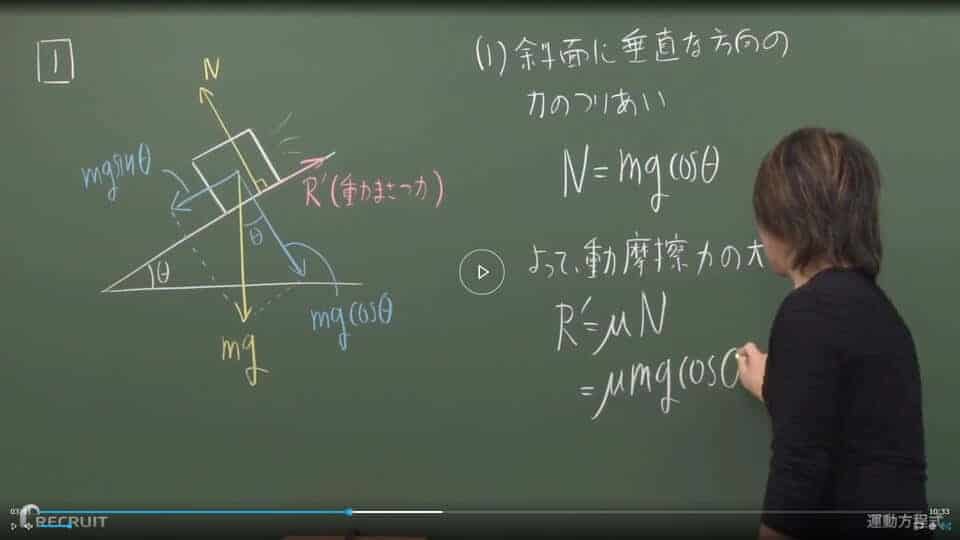 1
N
mgsinθ
R'(動まさつ力)
θ
θ
mgcosθ
mg
(1)斜面に垂直な方向の
力のつりあい
N=mgcosθ
よって、動摩擦力の大
R'=μN
=μmgcosθ
RECRUIT
運動方程式
10:33